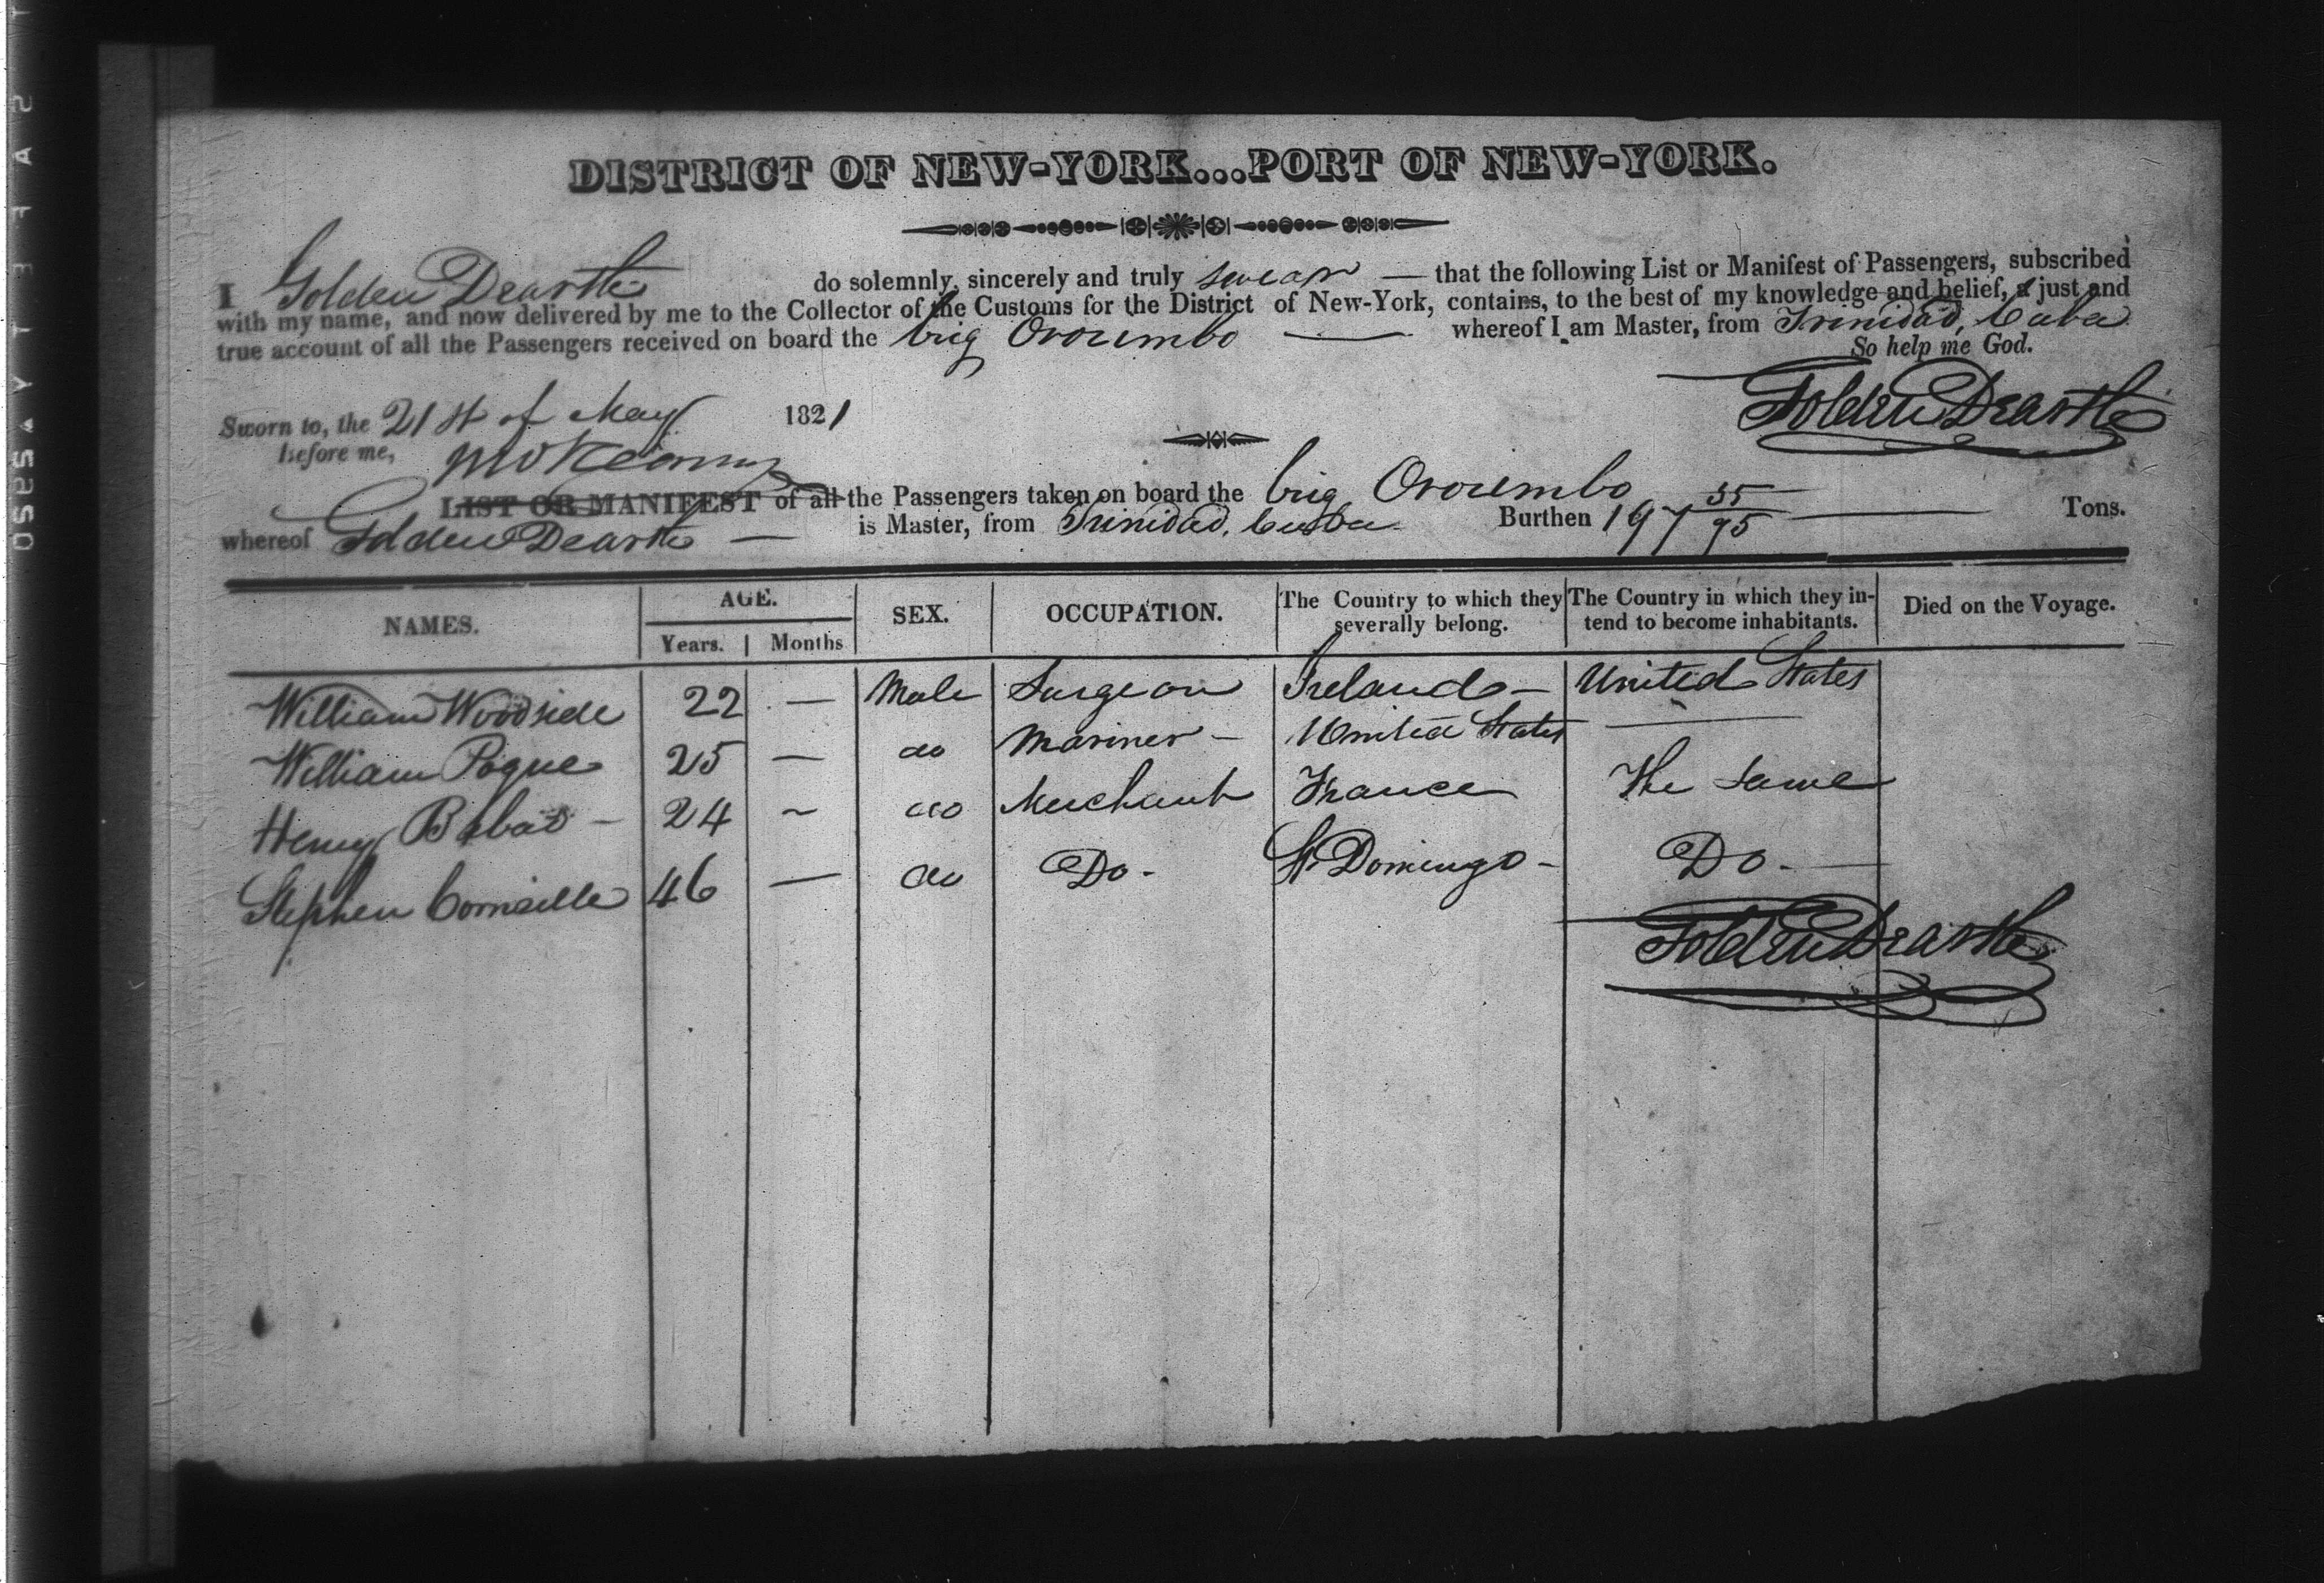 DISTRICT OF NEW-YORK...PORT OF NEW-YORK.
I Golden Dearth do solemnly, sincerely and truly swear — that the following List or Manifest of Passengers, subscribed
with my name, and now delivered by me to the Collector of the Customs for the District of New-York, contains, to the best of my knowledge and belief, a just and
true account of all the Passengers received on board the brig Orozimbo — whereof I am Master, from Trinidad, Cuba
So help me God.
Sworn to, the 21st of May 1821
before me,
Golden Dearth
LIST OR MANIFEST of all the Passengers taken on board the brig Orozimbo
whereof Golden Dearth — is Master, from Trinidad, Cuba Burthen 197 35/95 — Tons.
NAMES. AGE. SEX. OCCUPATION. The Country to which they severally belong. The Country in which they intend to become inhabitants. Died on the Voyage.
Years. Months
William Woodside 22 — Male Surgeon Ireland — United States
William Pogue 25 — do Mariner — United States —
Henry 24 ~ do Merchant France The Same
Stephen 46 — do Do - St Domingo - Do - —
Golden Dearth